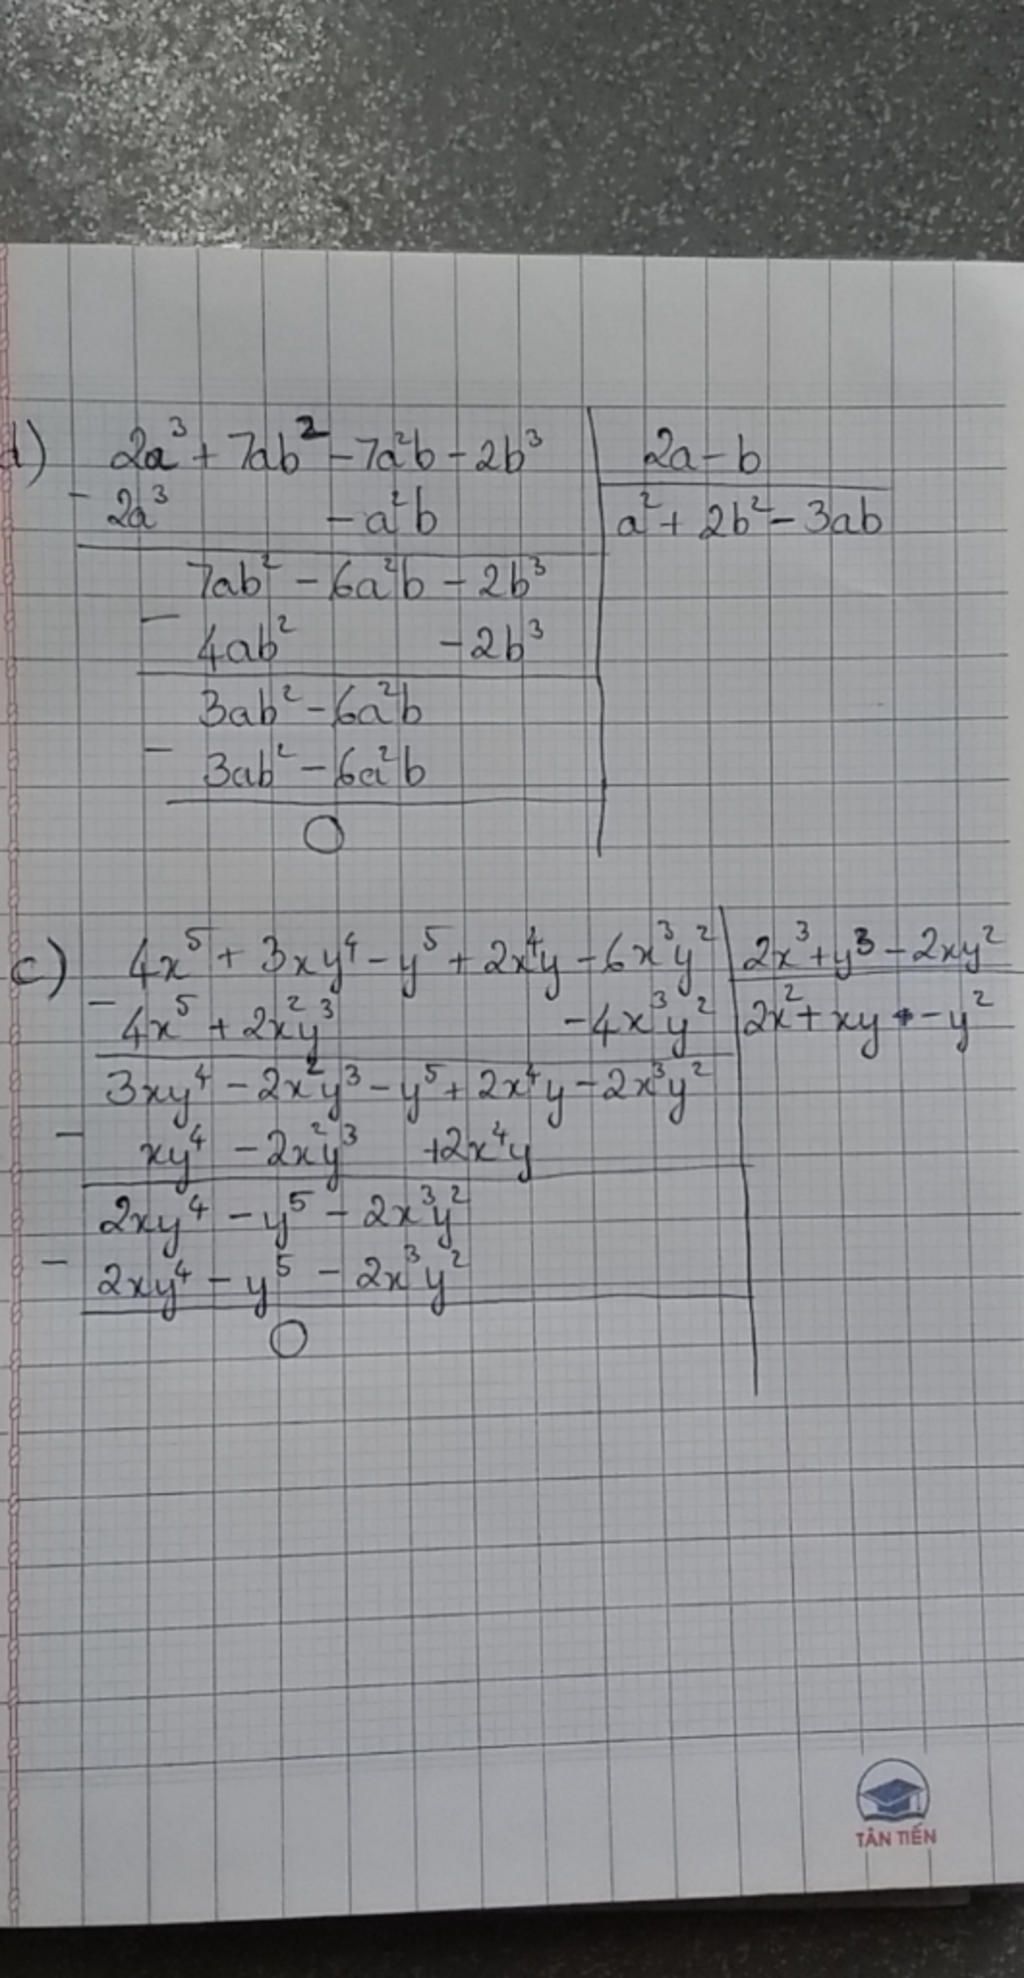 d) 2a³ + 7ab² - 7a²b - 2b³ | 2a - b
- 2a³ - a²b | a² + 2b² - 3ab
7ab² - 6a²b - 2b³
- 4ab² - 2b³
3ab² - 6a²b
- 3ab² - 6a²b
0
c) 4x⁵ + 3xy⁴ - y⁵ + 2x⁴y - 6x³y² | 2x³ + y³ - 2xy²
- 4x⁵ + 2x²y³ - 4x³y² | 2x² + xy - y²
3xy⁴ - 2x²y³ - y⁵ + 2x⁴y - 2x³y²
- xy⁴ - 2x²y³ + 2x⁴y
2xy⁴ - y⁵ - 2x³y²
- 2xy⁴ - y⁵ - 2x³y²
0
TÂN TIẾN